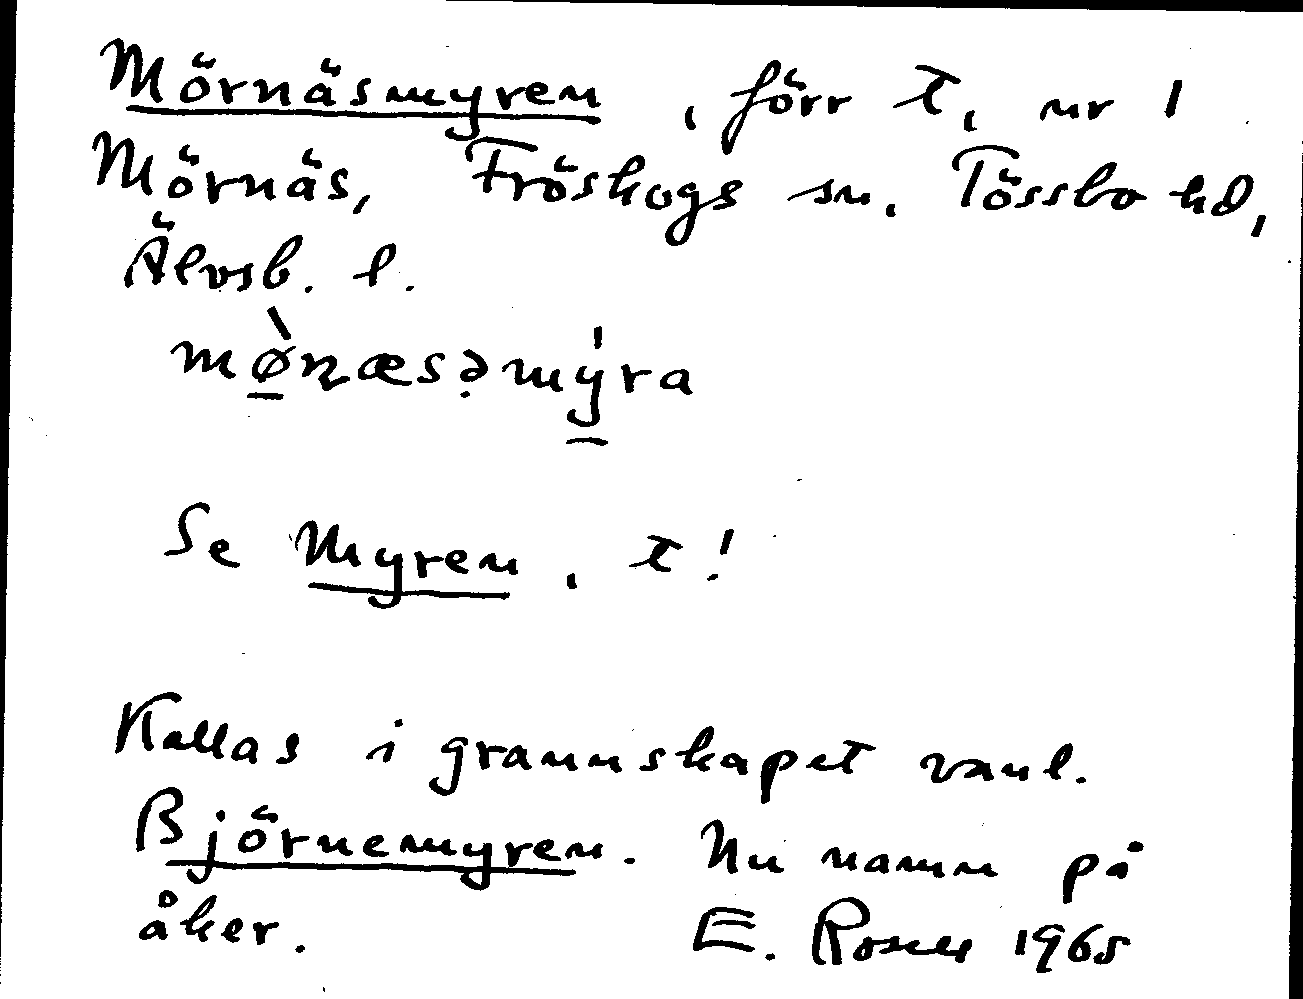 Mörnäsmyren, förr t, nr 1
Mörnäs, Fröskogs sn. Tössbo hd,
Älvsb. l.
mø̠̀ɳæsə̣mý̠ra
Se Myren, t!
Kallas i grannskapet vanl.
Björnemyren. Nu namn på
åker. E. Rosell 1965